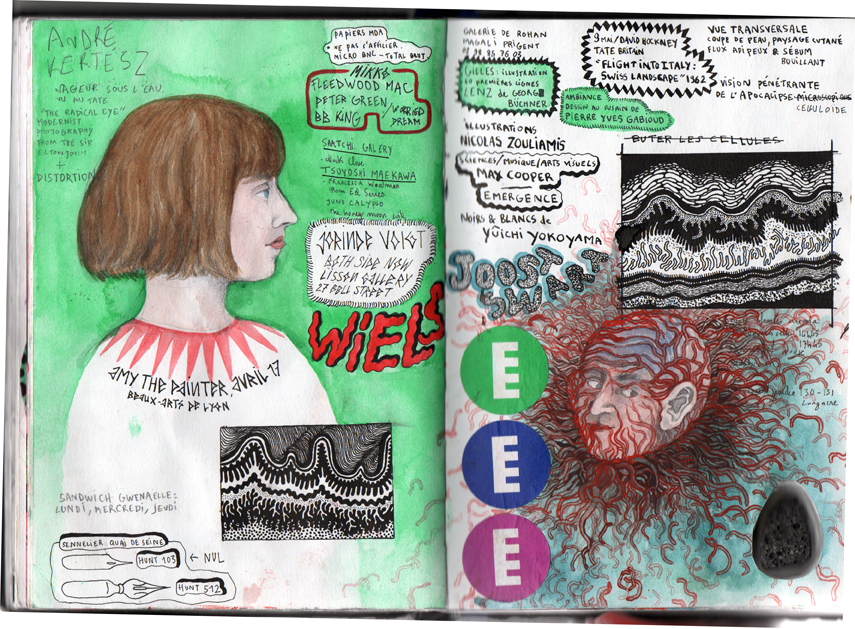 ANDRÉ
KERTÉSZ
NAGEUR SOUS L'EAU
VU AU TATE
"THE RADICAL EYE"
MODERNIST
PHOTOGRAPHY
FROM THE SIR
ELTON JOHN
+
DISTORTION
PAPIERS MDA
NE PAS S'AFFILIER.
MICRO BNC - TOTAL BRUT
MIKKO
FLEEDWOOD MAC
PETER GREEN
BB KING / WORRIED
DREAM
SAATCHI GALERY
TSUYOSHI MAEKAWA
FRANCESCA WOODMAN
FROM EEL SERIES
JUNO CALYPSO
the honey moon suite
JORINDE VOIGT
BOTH SIDE NOW
LISSON GALLERY
27 BELL STREET
WIELS
AMY THE PAINTER, AVRIL 17
BEAUX-ARTS DE LYON
SANDWICH GWENAELLE:
LUNDI, MERCREDI, JEUDI
SENNELIER QUAI DE SEINE
HUNT 103 ← NUL
HUNT 512
GALERIE DE ROHAN
MAGALI PRIGENT
GILLES: ILLUSTRATION
60 PREMIÈRES LIGNES
LENZ de GEORG
BÜCHNER
9 Mai / DAVID HOCKNEY
TATE BRITAIN
"FLIGHT INTO ITALY:
SWISS LANDSCAPE" 1962
VUE TRANSVERSALE
COUPE DE PEAU, PAYSAGE CUTANÉ
FLUX ADIPEUX & SÉBUM
BOUILLANT
VISION PÉNÉTRANTE
DE L'APOCALIPSE MICROSCOPIQUE
CELLULOÏDE
AMBIANCE
DESSIN AU FUSAIN DE
PIERRE YVES GABIOUD
ILLUSTRATIONS
NICOLAS ZOULIAMIS
BUTER LES CELLULES
SCIENCES/MUSIQUE/ARTS VISUELS
MAX COOPER
EMERGENCE
NOIRS & BLANCS de
YÛICHI YOKOYAMA
JOOST
SWARTE
E
E
E